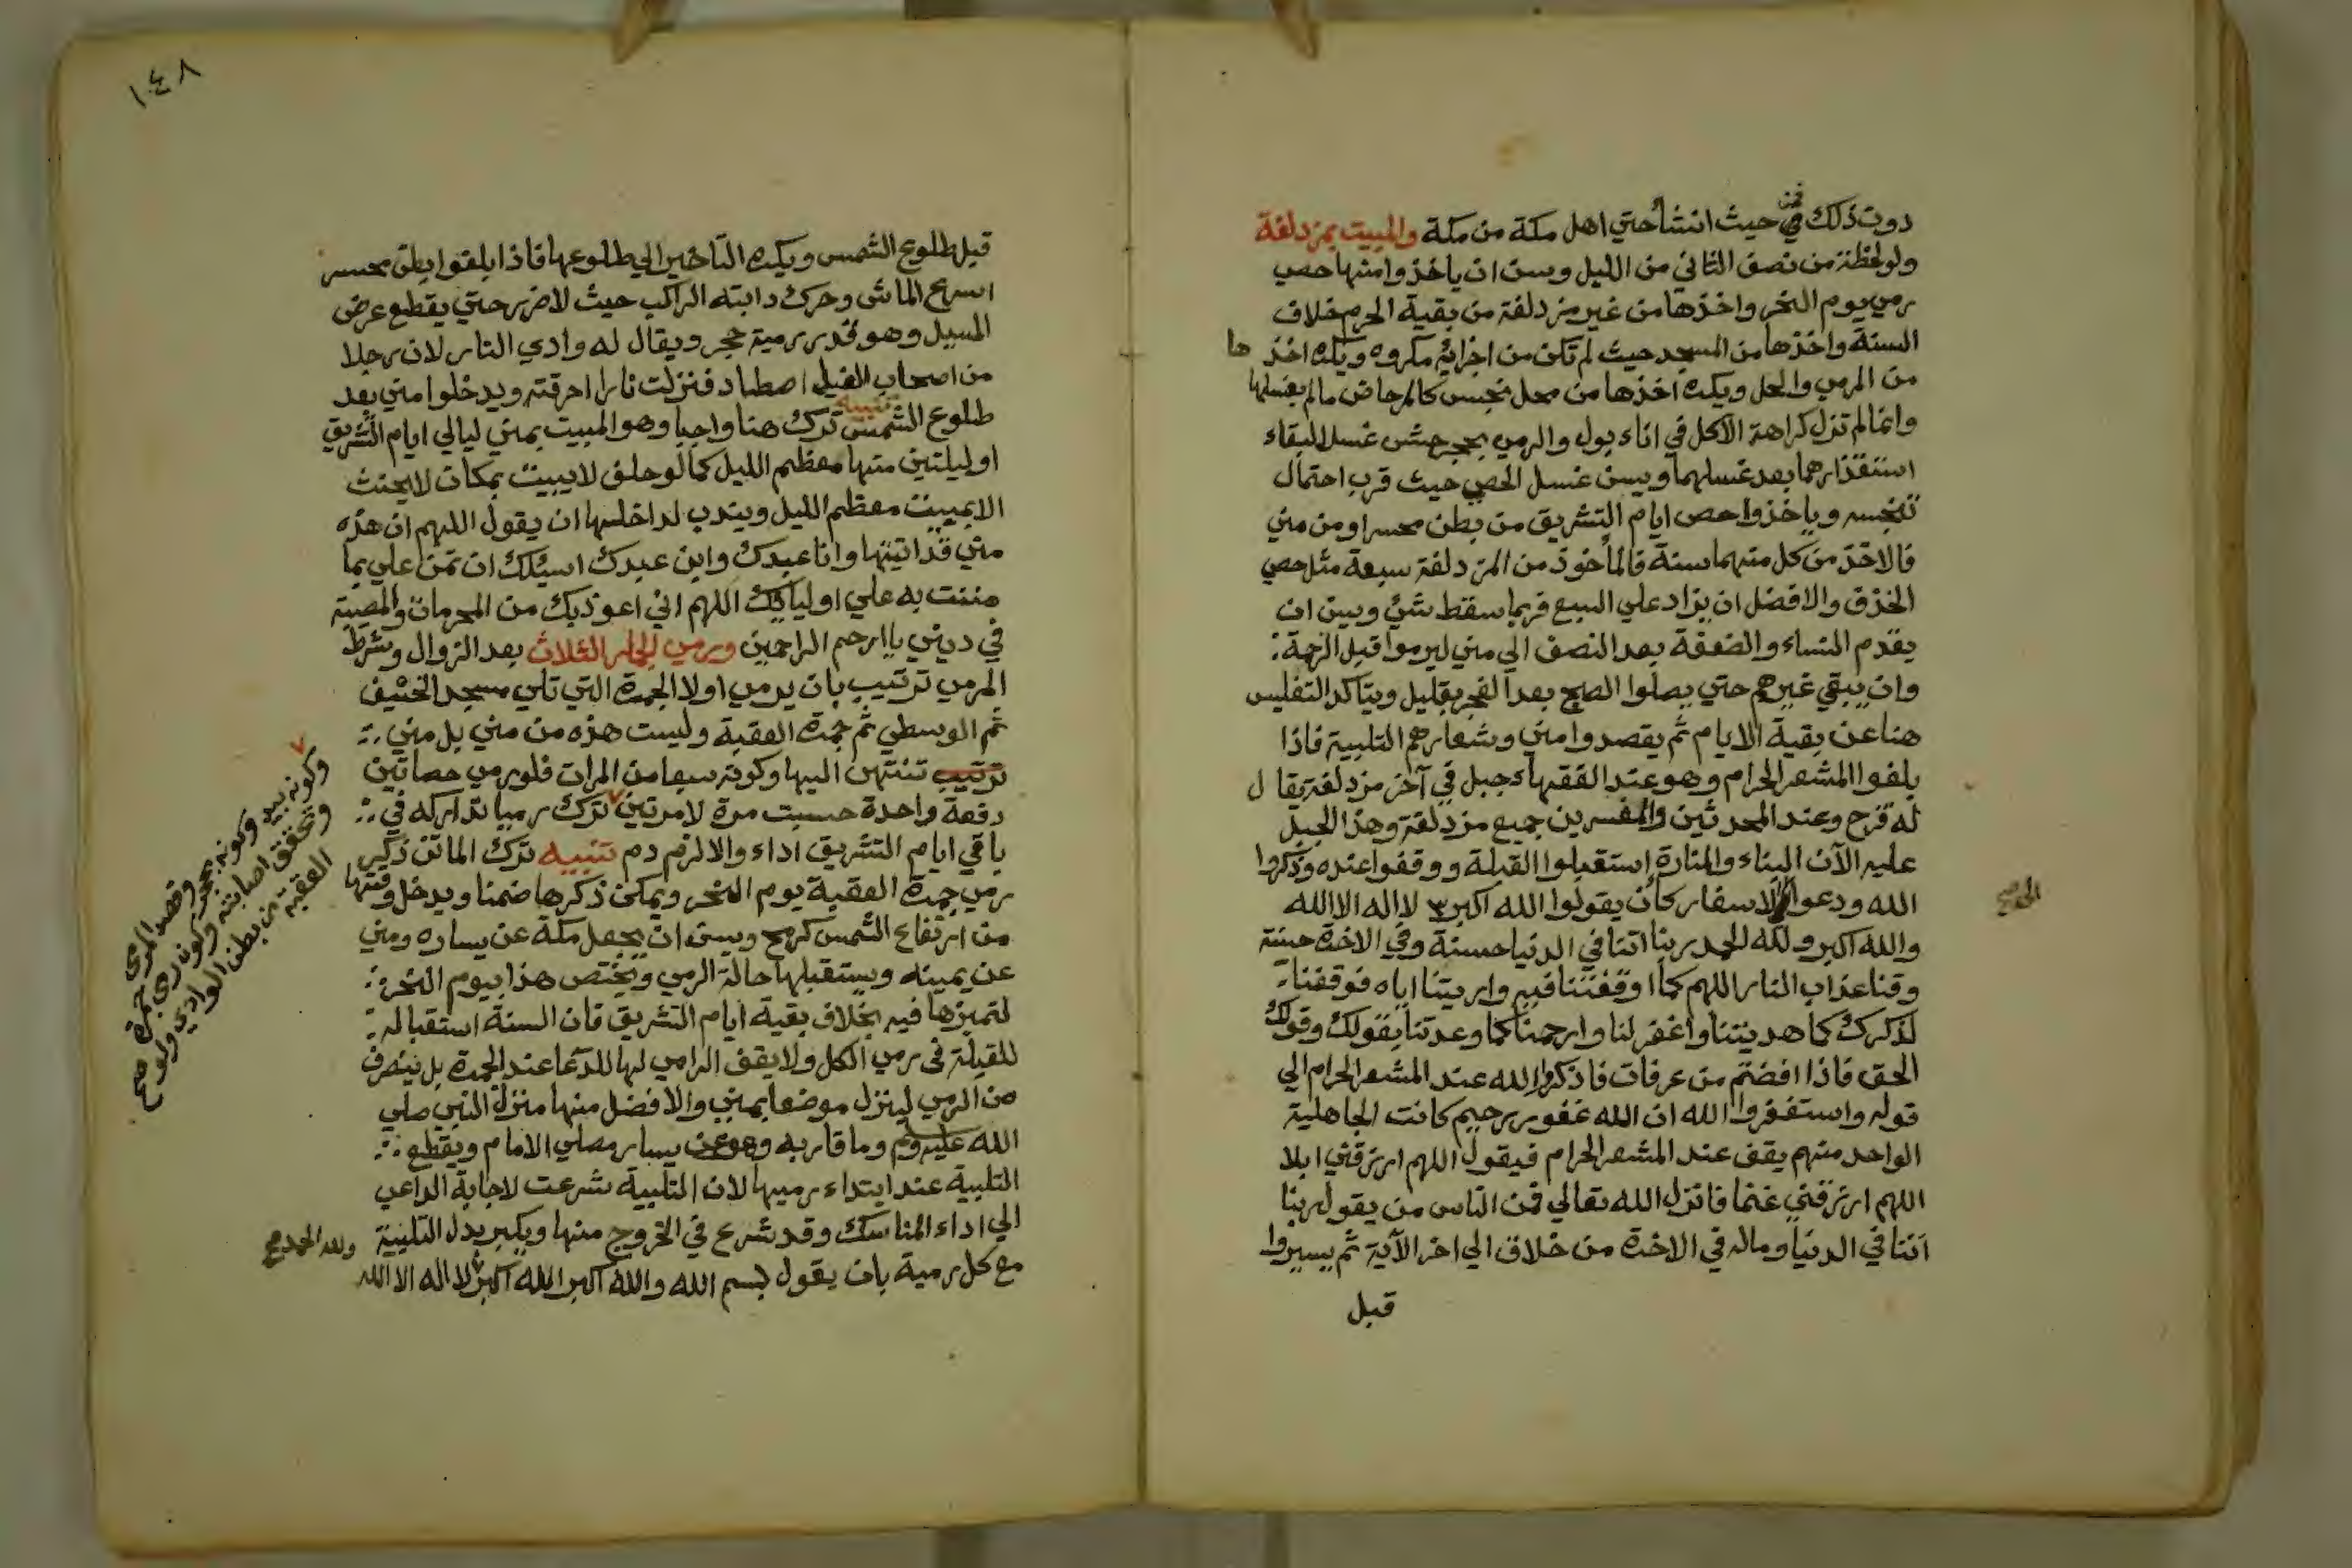 دون ذلك فمن حيث انشأ حتي اهل مكة من مكة والمبيت بمزدلفة
ولو لحظة من نصف الثاني من الليل وسن ان ياخذوا منها حصي
رمي يوم النحر واخذها من غير مزدلفة من بقية الحرم خلاف
السنة واخذها من المسجد حيث لم تكن من اجزائه مكروه ويكره اخذها
من المرمي والحل ويكره اخذها من محل نجس كالمرحاض مالم يغسلها
وانما لم تزل كراهة الاكل في اناء بول والرمي بحجر حش غسل لبقاء
استقذارهما بعد غسلهما ويسن غسل الحصي حيث قرب احتمال
تنجسه وياخذوا حصي ايام التشريق من بطن محسر او من مني
فالاخذ من كل منهما سنة فالمأخوذ من المزدلفة سبعة مثل حصي
الخذف والافضل ان يزاد علي السبع فربما سقط شئ ويسن ان
يقدم النساء والضعفة بعد النصف الي مني ليرموا قبل الزحمة
وان يبقي غيرهم حتي يصلوا الصبح بعد الفجر بقليل ويتأكد التغليس
هنا عن بقية الايام ثم يقصدوا مني وشعارهم التلبية فاذا
بلغوا المشعر الحرام وهو عند الفقهاء جبل في آخر مزدلفة يقال
له قزح وعند المحدثين والمفسرين جميع مزدلفة وهذا الجبل
عليه الآن البناء والمنارة استقبلوا القبلة ووقفوا عنده وذكروا
الله ودعوا للاسفار كأن يقولوا الله اكبر ٣ لا اله الا الله
والله اكبر ولله الحمد ربنا اتنا في الدنيا حسنة وفي الاخرة حسنة
وقنا عذاب النار اللهم كما اوقفتنا فيه واريتنا اياه فوفقنا
لذكرك كما هديتنا واغفر لنا وارحمنا كما وعدتنا بقولك وقولك
الحق فاذا افضتم من عرفات فاذكروا الله عند المشعر الحرام الي
قوله واستغفروا الله ان الله غفور رحيم كانت الجاهلية
الواحد منهم يقف عند المشعر الحرام فيقول اللهم ارزقني ابلا
اللهم ارزقني غنما فانزل الله تعالي فمن الناس من يقول ربنا
آتنا في الدنيا وماله في الاخرة من خلاق الي اخر الآية ثم يسيروا
قبل
١٤٨
قبل طلوع الشمس ويكره التأخير الي طلوعها فاذا بلغوا بطن محسر
اسرع الماشي وحرك دابته الراكب حيث لا ضرر حتي يقطع عرض
المسيل وهو قدر رمية حجر ويقال له وادي النار لان رجلا
من اصحاب الفيل اصطاد فنزلت نارا احرقته ويدخلوا مني بعد
طلوع الشمس تنبيه ترك هنا واجبا وهو المبيت بمني ليالي ايام التشريق
او ليلتين منها معظم الليل كما لو حلف لا يبيت بمكان لا يحنث
الا بمبيت معظم الليل ويندب لداخلها ان يقول اللهم ان هذه
مني قد اتيتها وانا عبدك وابن عبدك اسئلك ان تمن علي بما
مننت به علي اوليائك اللهم اني اعوذ بك من الحرمان والمصيبة
في ديني يا ارحم الراحمين ورمي الجمار الثلاث بعد الزوال وشرط
المرمي ترتيب بان يرمي اولا الجمرة التي تلي مسجد الخيف
ثم الوسطي ثم جمرة العقبة وليست هذه من مني بل مني
ترتيب تنتهي اليها وكونه سبعا من المرات فلو رمي حصاتين
دفعة واحدة حسبت مرة لا مرتين ٧ ترك رميا تداركه في
باقي ايام التشريق اداء والا لزم دم تنبيه ترك الماتن ذكر
رمي جمرة العقبة يوم النحر ويمكن ذكرها ضمنا ويدخل وقتها
من ارتفاع الشمس كرمح ويسن ان يجعل مكة عن يساره ومني
عن يمينه ويستقبلها حالة الرمي ويختص هذا بيوم النحر
لتميزها فيه بخلاف بقية ايام التشريق فان السنة استقباله
للقبلة في رمي الكل ولا يقف الرامي لها للدعا عند الجمرة بل ينصرف
من الرمي لينزل موضعا بمني والافضل منها منزل النبي صلي
الله عليه وسلم وما قاربه وهو عن يسار مصلي الامام ويقطع
التلبية عند ابتداء رميها لان التلبية شرعت لاجابة الداعي
الي اداء المناسك وقد شرع في الخروج منها ويكبر بدل التلبية
مع كل رمية بان يقول بسم الله والله اكبر الله اكبر لا اله الا الله
ولله الحمد صح
٧
وكونه بيد وكونه بحجر وقصد المرمي
وتحقق اصابته وكون رمي جمرة
العقبة من بطن الوادي ولو صح